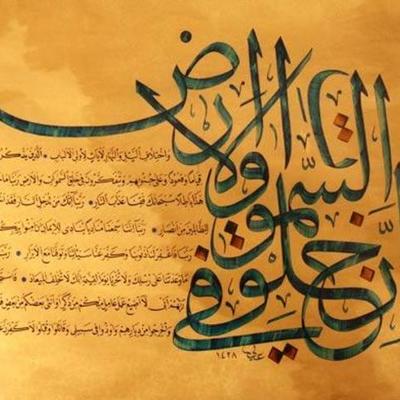 إن في خلق السموات والأرض
واختلاف الليل والنهار لآيات لأولي الألباب • الذين
قياما وقعودا وعلى جنوبهم ويتفكرون في خلق السموات والأرض ربنا ما
هذا باطلا سبحانك فقنا عذاب النار • ربنا إنك من تدخل النار فقد
للظالمين من أنصار • ربنا إننا سمعنا مناديا ينادي للإيمان أن آمنوا بربكم
ربنا فاغفر لنا ذنوبنا وكفر عنا سيئاتنا وتوفنا مع الأبرار • ربنا
ما وعدتنا على رسلك ولا تخزنا يوم القيامة إنك لا تخلف الميعاد •
ربهم أني لا أضيع عمل عامل منكم من ذكر أو أنثى بعضكم من بعض
وأخرجوا من ديارهم وأوذوا في سبيلي وقاتلوا وقتلوا لأكفرن
١٤٢٨